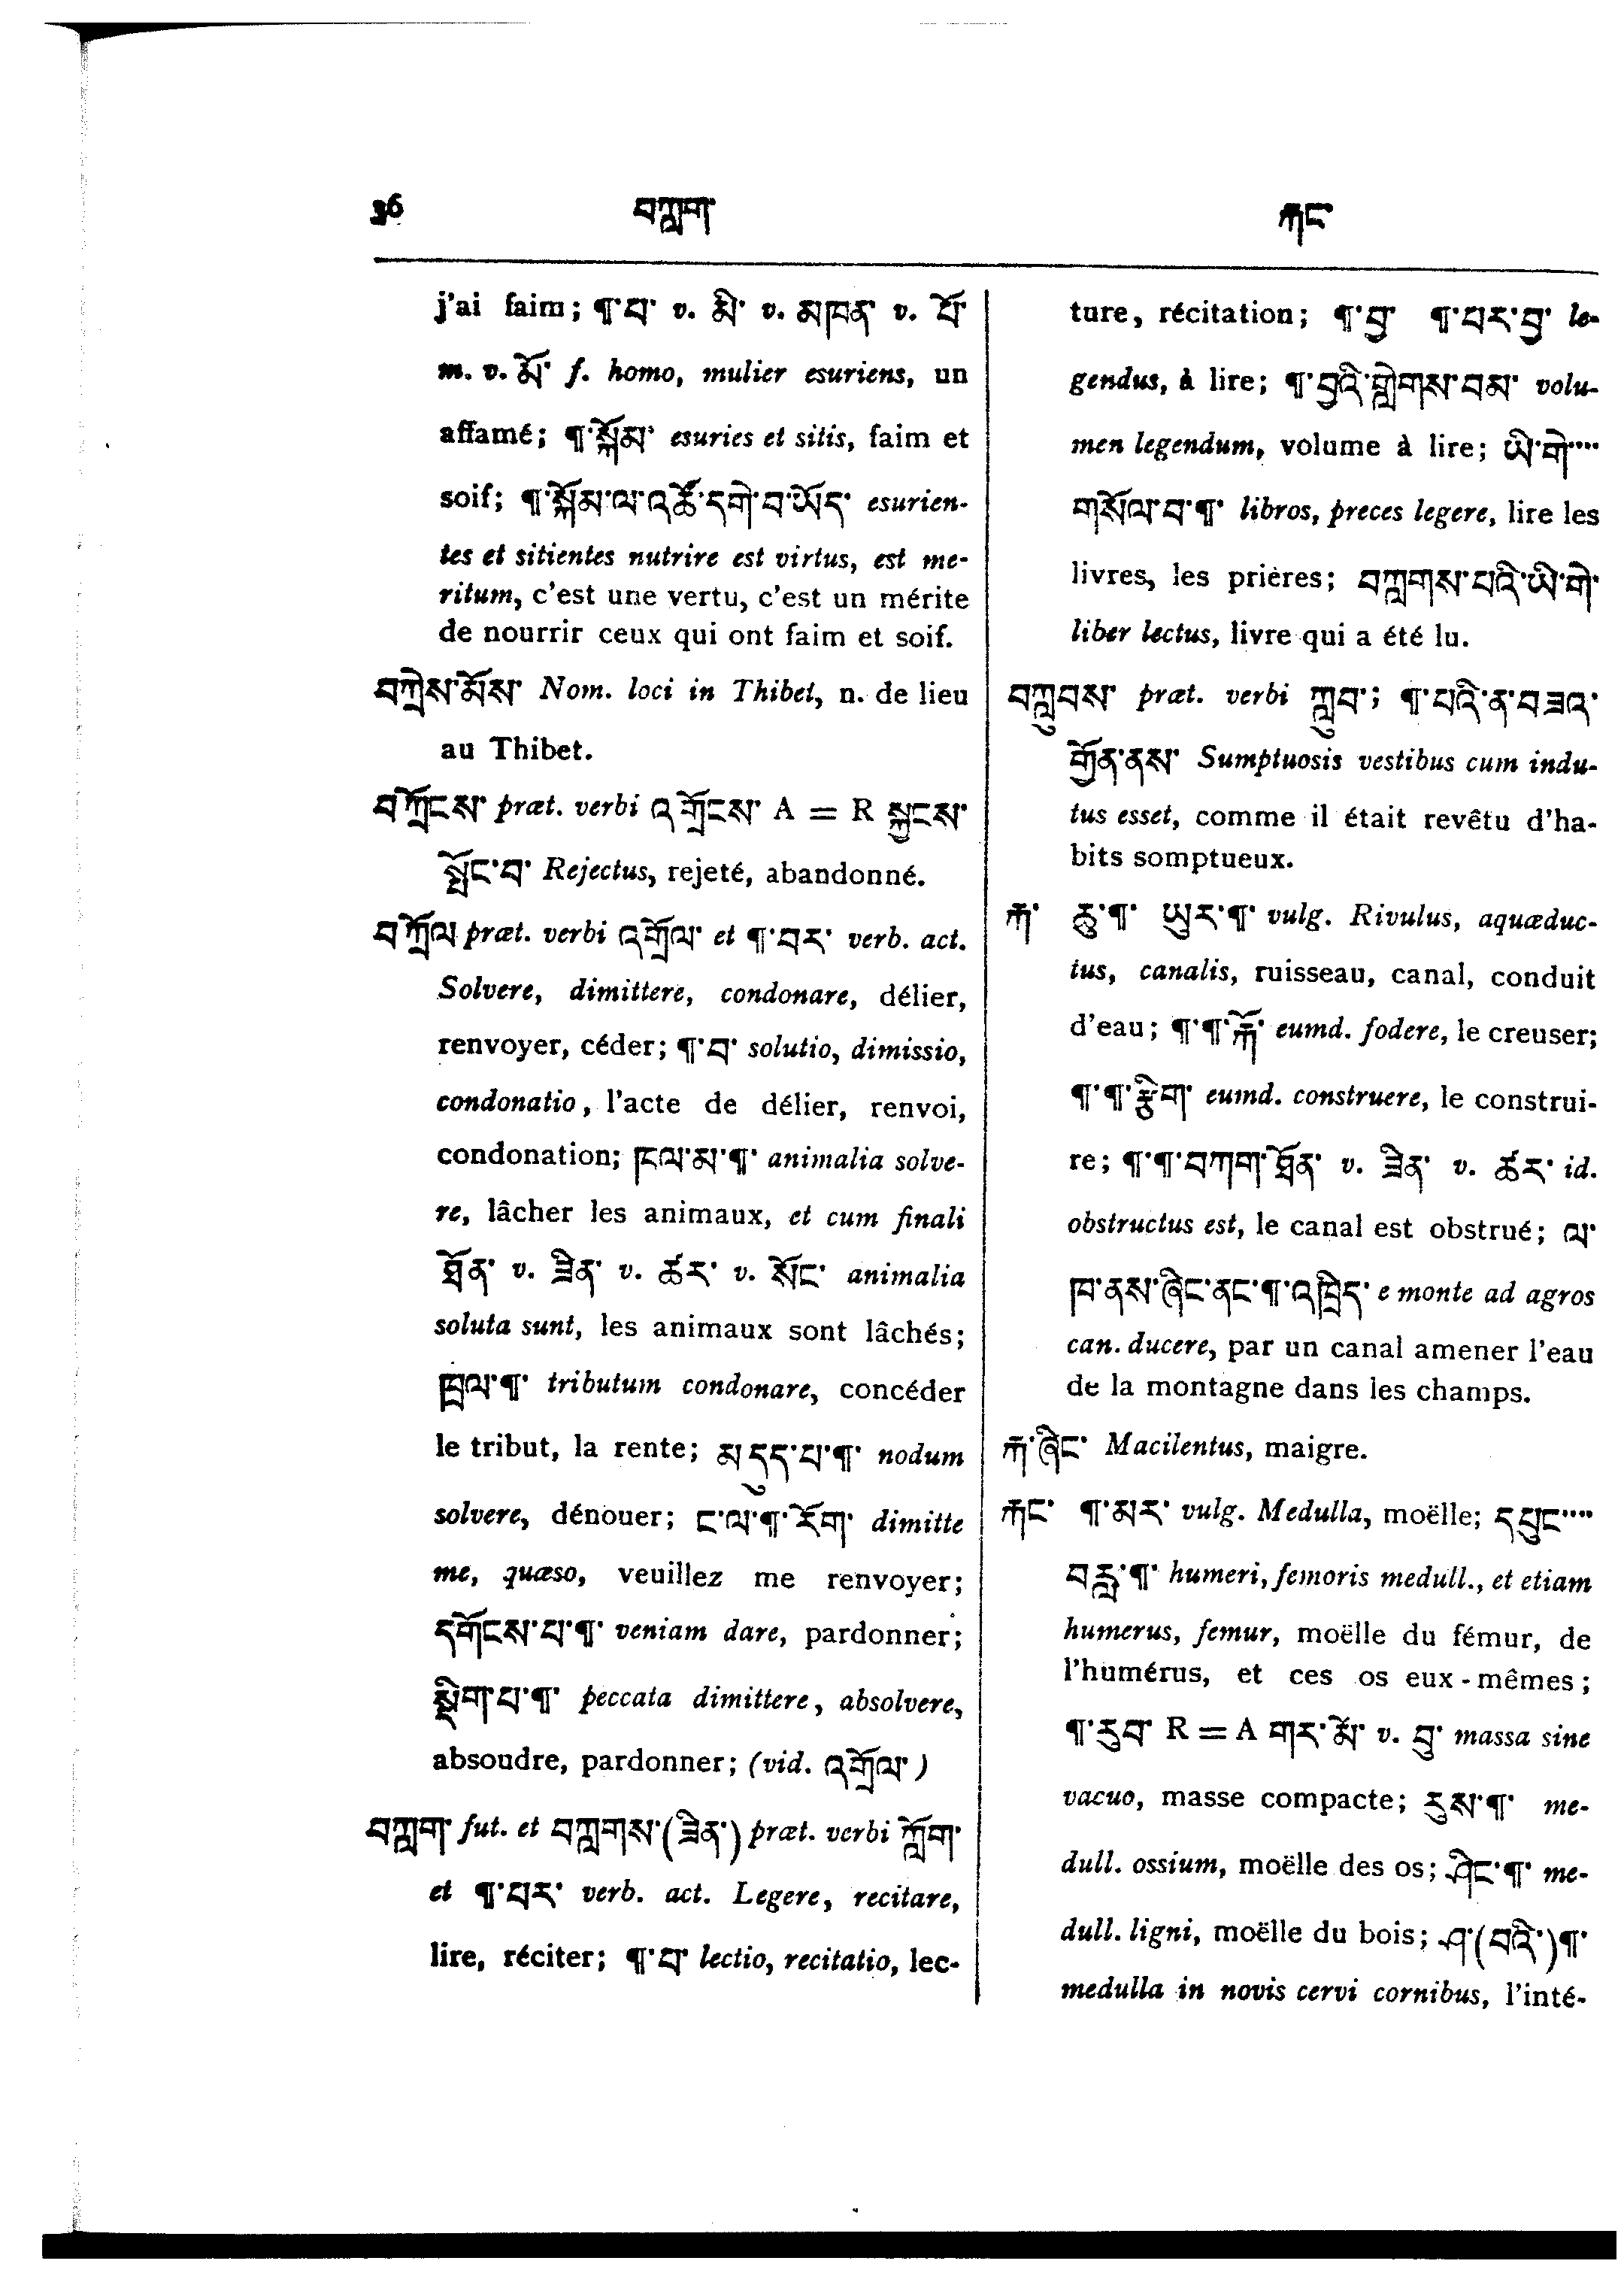 36 བཀླག་ རྐང་
j'ai faim; ¶་བ་ v. མི་ v. མཁན་ v. པོ་
m. v. མོ་ f. homo, mulier esuriens, un
affamé; ¶་སྐོམ་ esuries et sitis, faim et
soif; ¶་སྐོམ་ལ་འཚོ་དགེ་བ་ཡོད་ esurien-
tes et sitientes nutrire est virtus, est me-
ritum, c'est une vertu, c'est un mérite
de nourrir ceux qui ont faim et soif.
བཀྲེས་མོས་ Nom. loci in Thibet, n. de lieu
au Thibet.
བཀྲོངས་ præt. verbi འགྲོངས་ A = R སྐྱུངས་
སྤྲོང་བ་ Rejectus, rejeté, abandonné.
བཀྲོལ præt. verbi འགྲོལ་ et ¶་བར་ verb. act.
Solvere, dimittere, condonare, délier,
renvoyer, céder; ¶་བ་ solutio, dimissio,
condonatio, l'acte de délier, renvoi,
condonation; ངལ་མ་¶་ animalia solve-
re, lâcher les animaux, et cum finali
ཐོན་ v. ཟིན་ v. ཚར་ v. སོང་ animalia
soluta sunt, les animaux sont lâchés;
ཁྲལ་¶་ tributum condonare, concéder
le tribut, la rente; མདུད་པ་¶་ nodum
solvere, dénouer; ང་ལ་¶་རོག་ dimitte
me, quæso, veuillez me renvoyer;
དགོངས་པ་¶་ veniam dare, pardonner;
སྡིག་པ་¶་ peccata dimittere, absolvere,
absoudre, pardonner; (vid. འགྲོལ་)
བཀླག་ fut. et བཀླགས་(ཟིན་) præt. verbi ཀློག་
et ¶་བར་ verb. act. Legere, recitare,
lire, réciter; ¶་པ་ lectio, recitatio, lec-
ture, récitation; ¶་བྱ་ ¶་པར་བྱ་ le-
gendus, à lire; ¶་བྱའི་གླེགས་བམ་ volu-
men legendum, volume à lire; ཡི་གེ་····
གསོལ་བ་¶་ libros, preces legere, lire les
livres, les prières; བཀླགས་པའི་ཡི་གེ་
liber lectus, livre qui a été lu.
བཀླུབས་ præt. verbi ཀླུབ་; ¶་པའི་ན་བཟའ་
གྱོན་ནས་ Sumptuosis vestibus cum indu-
tus esset, comme il était revêtu d'ha-
bits somptueux.
རྐ་ ཆུ་¶་ ཡུར་¶་ vulg. Rivulus, aquæduc-
tus, canalis, ruisseau, canal, conduit
d'eau; ¶་¶་རྐོ་ eumd. fodere, le creuser;
¶་¶་རྩིག་ eumd. construere, le construi-
re; ¶་¶་བཀག་ཐོན་ v. ཟིན་ v. ཚར་ id.
obstructus est, le canal est obstrué; ལ་
ཁ་ནས་ཞིང་ནང་¶་འཁྲིད་ e monte ad agros
can. ducere, par un canal amener l'eau
de la montagne dans les champs.
རྐ་ཞིང་ Macilentus, maigre.
རྐང་ ¶་མར་ vulg. Medulla, moëlle; དཔུང་····
བརླ་¶་ humeri, femoris medull., et etiam
humerus, femur, moëlle du fémur, de
l'humérus, et ces os eux-mêmes;
¶་རུབ་ R = A གར་མོ་ v. བུ་ massa sine
vacuo, masse compacte; རུས་¶་ me-
dull. ossium, moëlle des os; ཤིང་¶་ me-
dull. ligni, moëlle du bois; ཤ་(བའི་)¶་
medulla in novis cervi cornibus, l'inté-